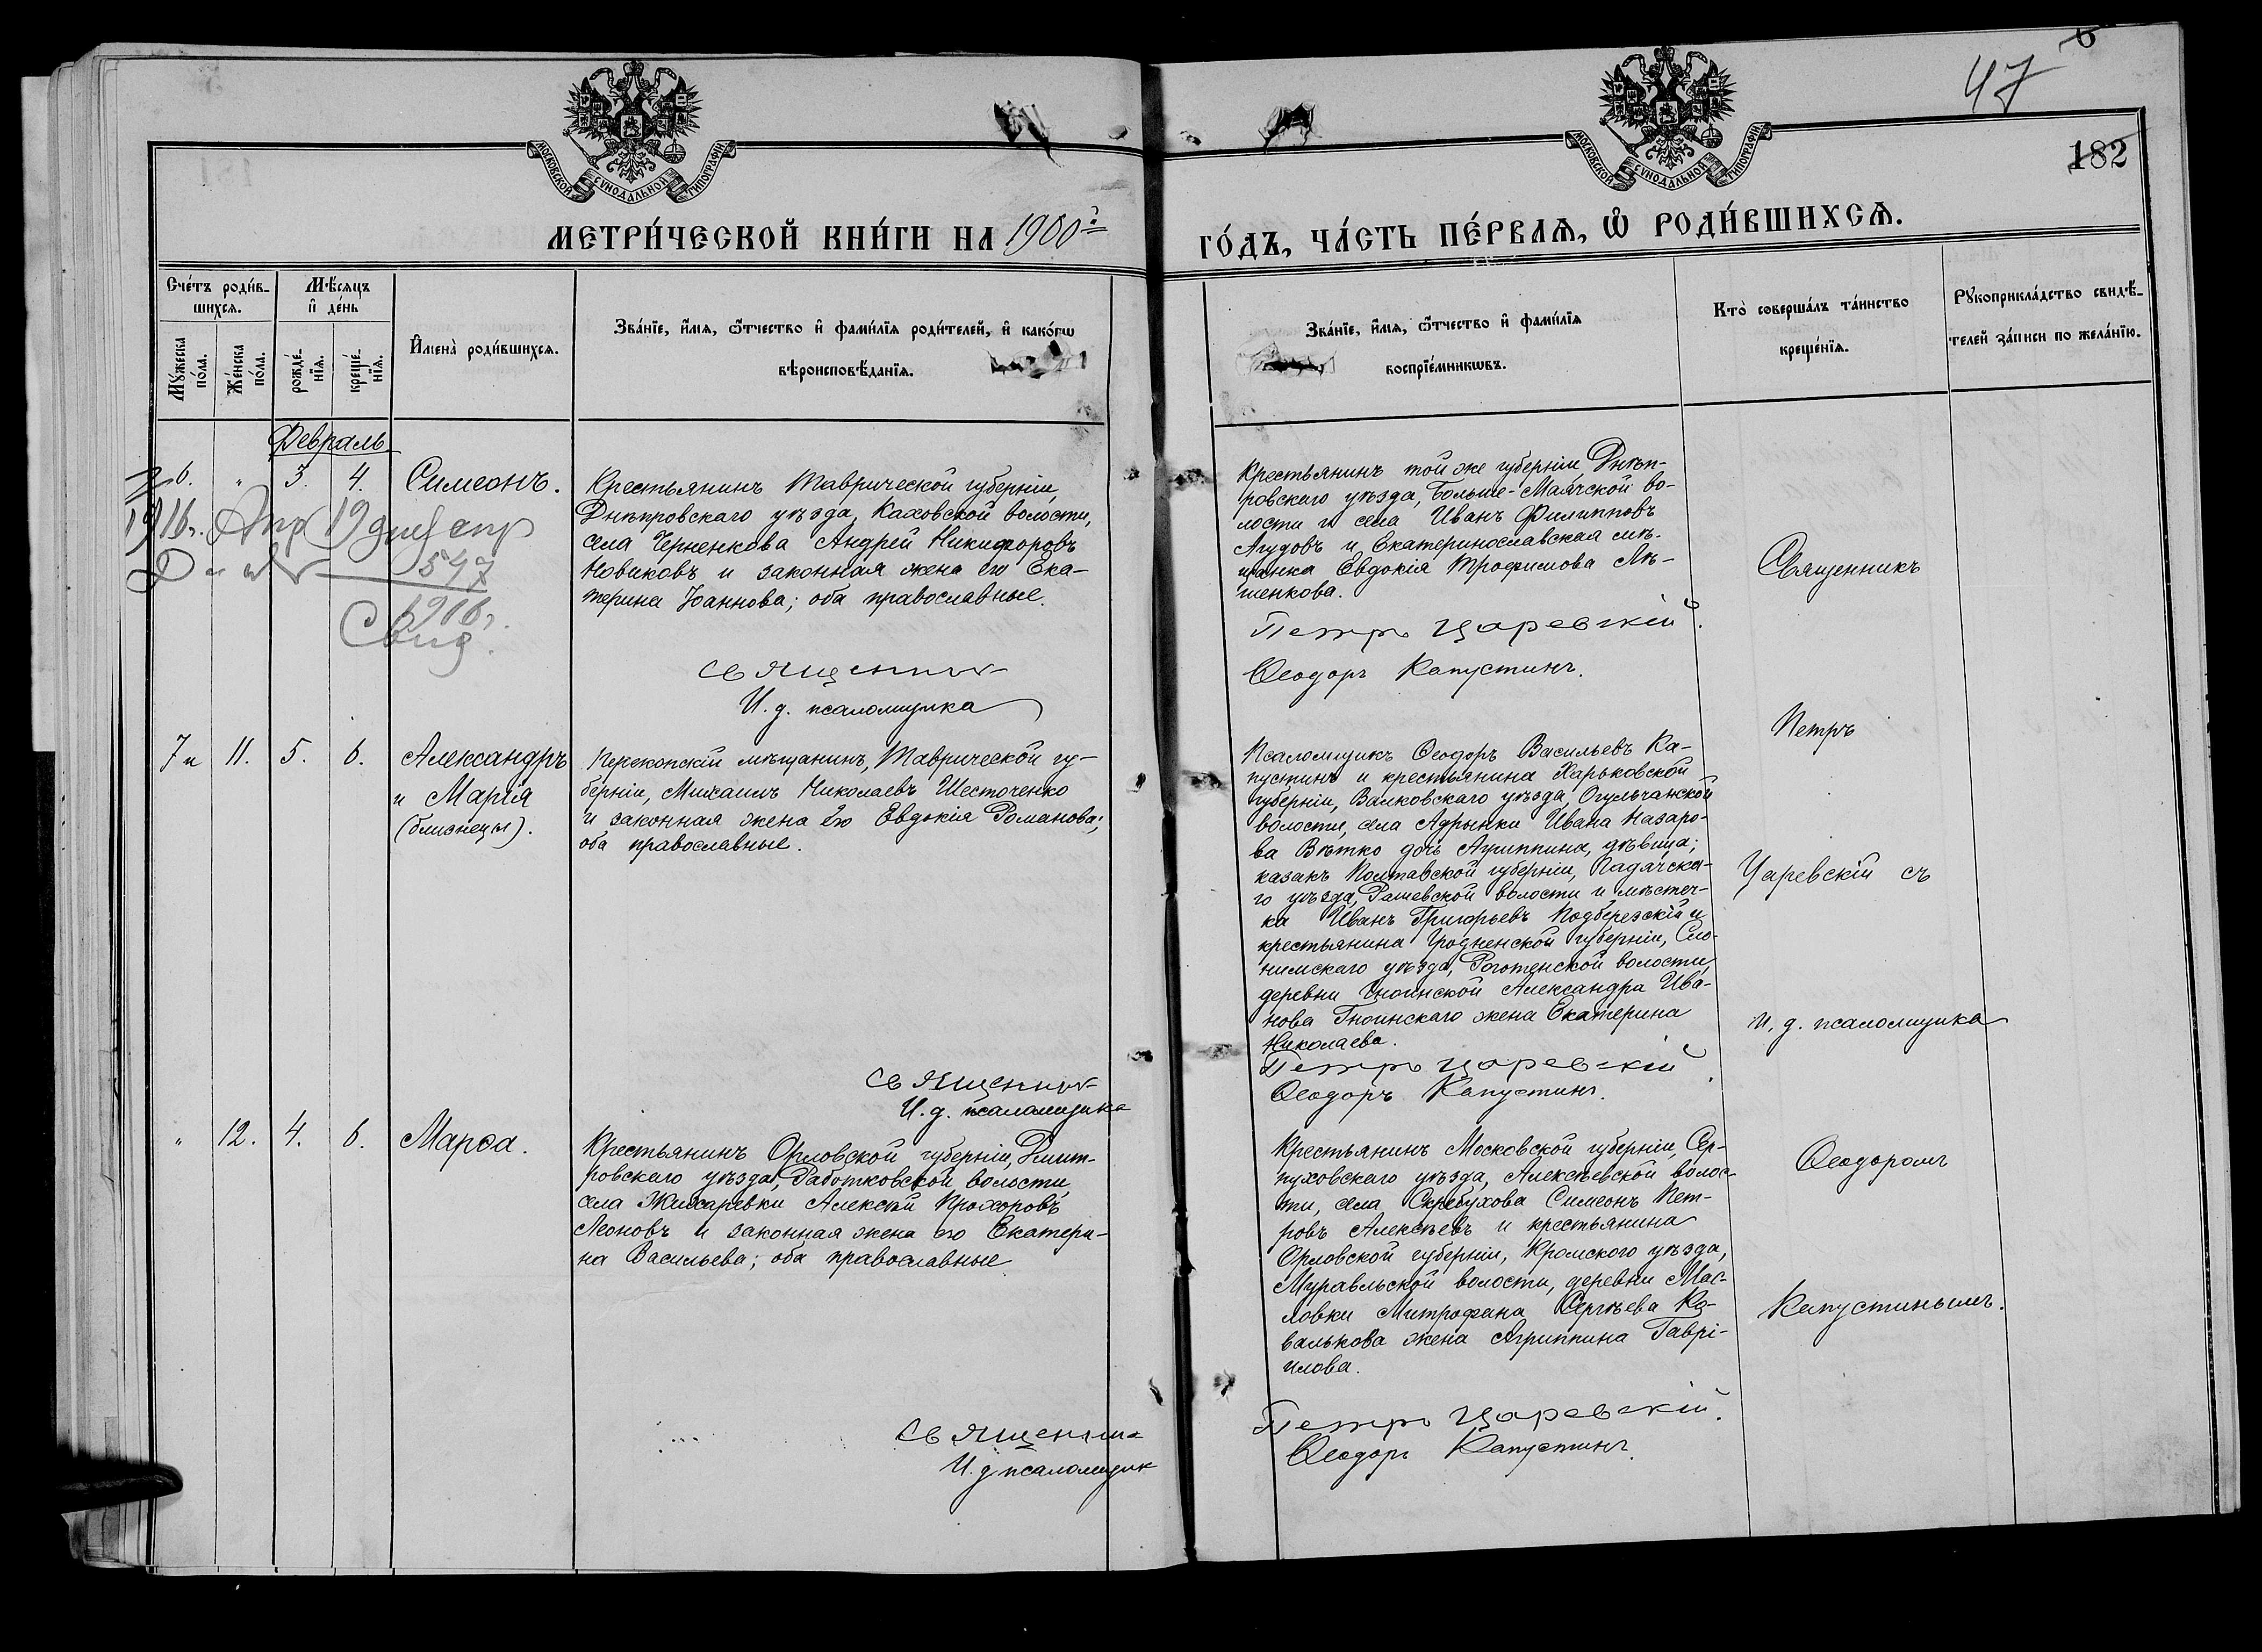 47
182
МОСКОВСКОЙ СѴНОДАЛЬНОЙ ТИПОГРАФІИ
МОСКОВСКОЙ СѴНОДАЛЬНОЙ ТИПОГРАФІИ
МЕТРИ́ЧЕСКОЙ КНИ́ГИ НА 1900й
ГО́ДЪ, ЧА́СТЬ ПЕ́РВАѦ, Ѿ РОДИ́ВШИХСѦ.
Сче́тъ роди́в-
шихсѧ.
Мꙋ́жеска
по́ла.
Же́нска
по́ла.
Мѣ́сѧцъ
и҆ де́нь
рожде́-
нїѧ.
креще́-
нїѧ.
И҆мена̀ роди́вшихсѧ.
Зва́нїе, и҆́мѧ, ѻ҆́тчество и҆ фами́лїѧ роди́телей, и҆ како́гѡ
вѣроисповѣ́данїѧ.
Зва́нїе, и҆́мѧ, ѻ҆́тчество и҆ фами́лїѧ
воспрїе́мникѡвъ.
Кто̀ соверша́лъ та́инство
креще́нїѧ.
Рꙋкоприкла́дство свидѣ́-
телей за́писи по жела́нїю.
Февраль
6. " 3. 4. Симеонъ.
Крестьянинъ Таврической губерніи,
Днѣпровскаго уѣзда, Каховской волости,
села Черненкова Андрей Никифоровъ
Новиковъ и законная жена его Ека-
терина Іоаннова; оба православные.
1916г. Апр 19
547
1916г.
Свид.
Священникъ
И. д. псаломщика
Крестьянинъ той же губерніи Днѣп-
ровскаго уѣзда, Больше-Маячской во-
лости и села Иванъ Филипповъ
Агудовъ и Екатеринославская мѣ-
щанка Евдокія Трофимова Ля-
шенкова.
Петръ Царевскій.
Ѳеодоръ Капустинъ.
Священникъ
Петръ
Царевскій съ
и. д. псаломщика
Ѳеодоромъ
Капустинымъ.
7 и 11. 5. 6. Александръ
и Марія
(близнецы).
Перекопскій мѣщанинъ, Таврической гу-
берніи, Михаилъ Николаевъ Шесточенко
и законная жена его Евдокія Романова;
оба православные.
Священникъ
И. д. псаломщика
Псаломщикъ Ѳеодоръ Васильевъ Ка-
пустинъ и крестьянина Харьковской
губерніи, Валковскаго уѣзда, Огульчанской
волости, села Адрынки Ивана Назаро-
ва Вѣтко дочь Агриппина, дѣвица;
казакъ Полтавской губерніи, Гадячска-
го уѣзда, Рашевской волости и мѣстеч-
ка Иванъ Григорьевъ Подберезскій и
крестьянина Гродненской губерніи, Сло-
нимскаго уѣзда, Роготенской волости,
деревни Гноинской Александра Ива-
нова Гноинскаго жена Екатерина
Николаева.
Петръ Царевскій.
Ѳеодоръ Капустинъ.
" 12. 4. 6. Марѳа.
Крестьянинъ Орловской губерніи, Дмит-
ровскаго уѣзда, Работковской волости
села Жихаревки Алексѣй Прохоровъ
Леоновъ и законная жена его Екатери-
на Васильева; оба православные
Священникъ
И. д псаломщик
Крестьянинъ Московской губерніи, Сер-
пуховскаго уѣзда, Алексѣевской волос-
ти, села Скребухова Симеонъ Пет-
ровъ Алексѣевъ и крестьянина
Орловской губерніи, Кромского уѣзда,
Муравльской волости, деревни Мас-
ловки Митрофана Сергѣева Ко-
валькова жена Агриппина Гаврі-
илова.
Петръ Царевскій.
Ѳеодоръ Капустинъ.